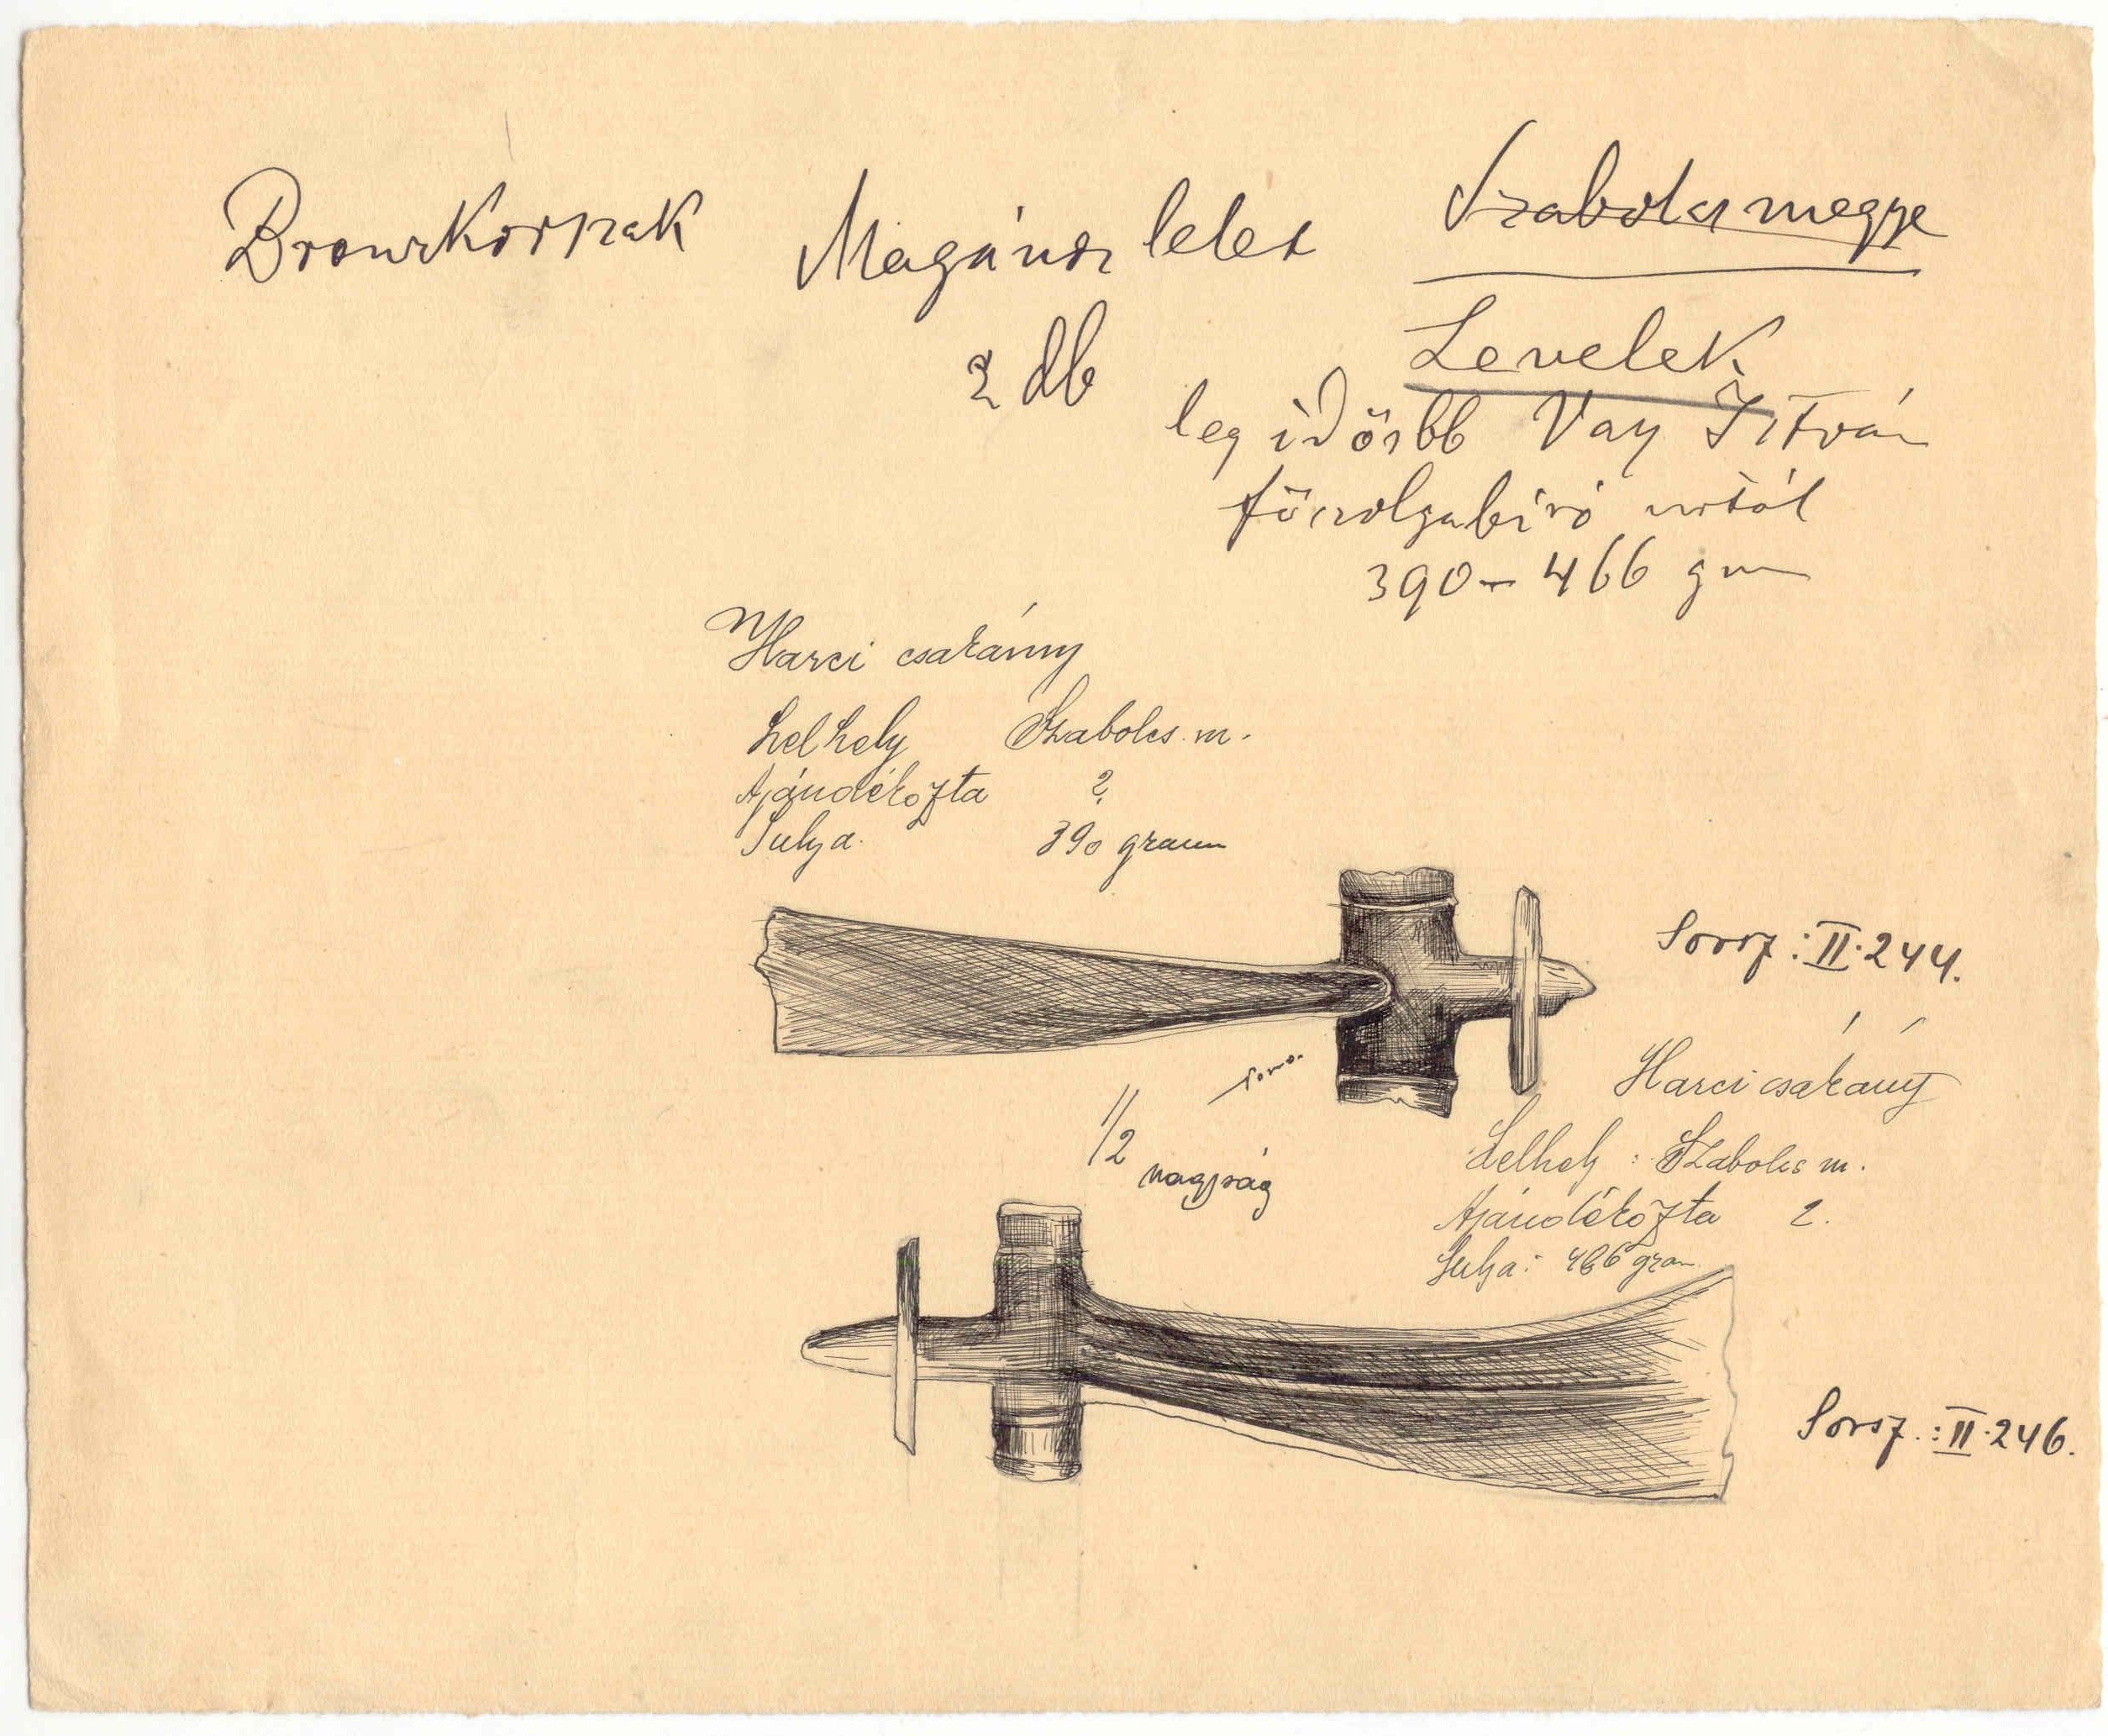 Bronzkorszak Magános lelet Szabolcs megye
2 db
Levelek
legidősbb Vay István
főszolgabíró urtól
390 – 466 gm
Harci csakány
Lelhely Szabolcs m.
Ajándékozta ?
Sulya. 390 gram
Sorsz: II.244.
Harci csakány
1/2 nagyság
Lelhely: Szabolcs m.
Ajándékozta ?.
Sulya: 466 gram
Sorsz.: II.246.